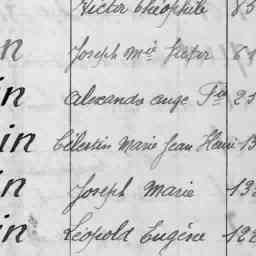 Victor Théophile 85
in Joseph Mie
in Alexandre ange
in Célestin Marie Jean Henri 13
in Joseph Marie 13
in Léopold Eugène 122